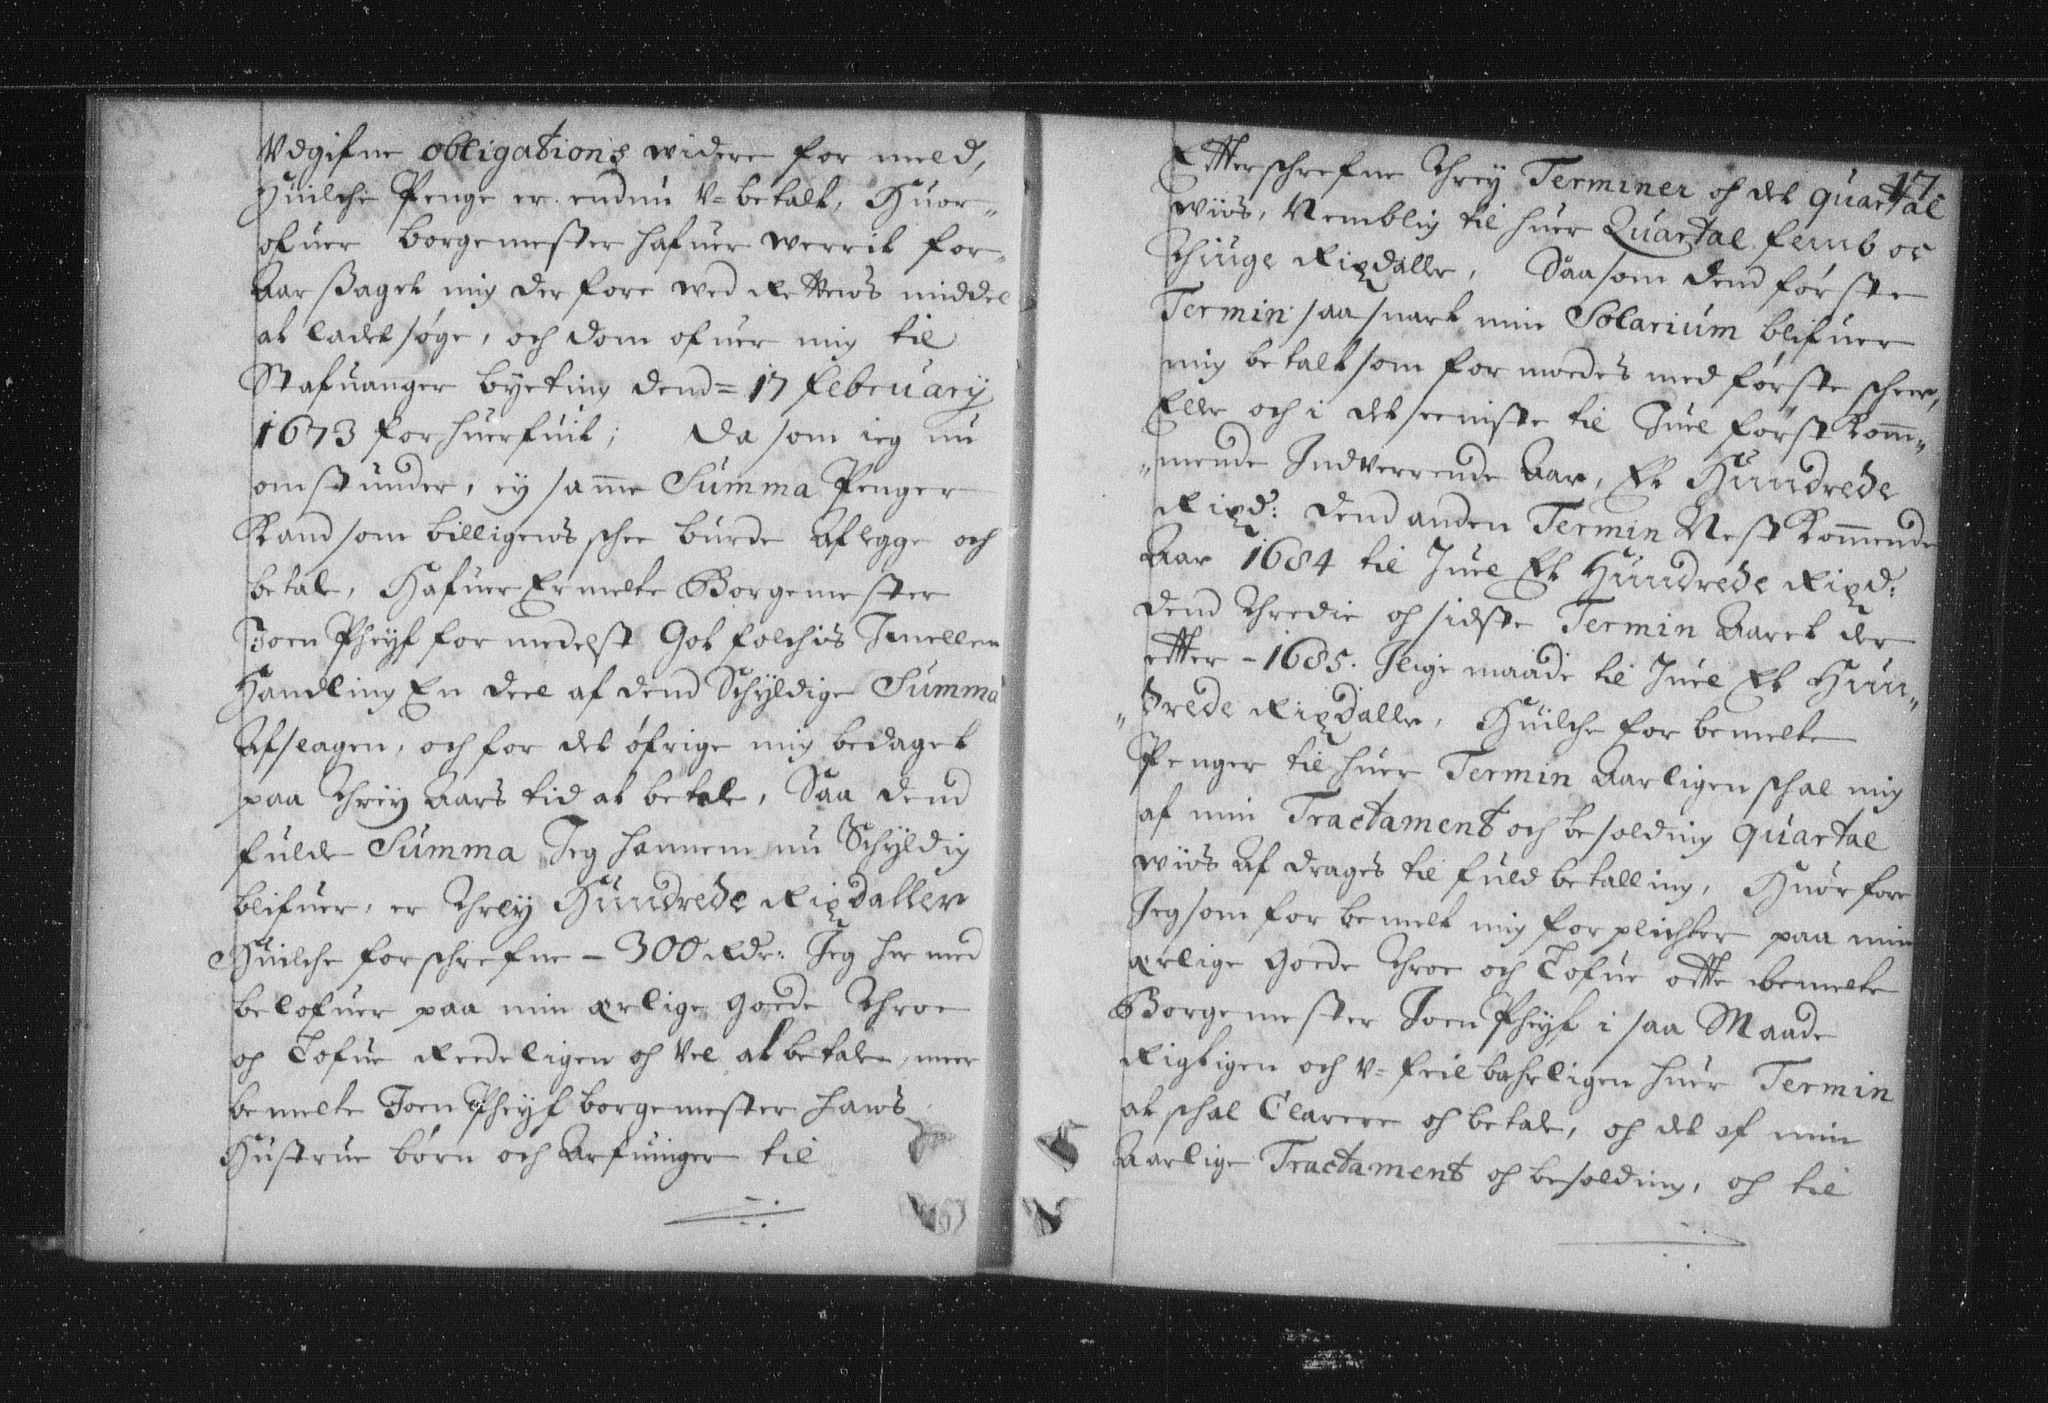 Vdgifne obligations widere formeld,
Huilche Penge er endnu V=betalt, Huor„
ofuer borgemester hafuer werrit for„
Aarßaget mig derfore wed Rettens middel
at ladet søge, och dom ofuer mig til
Stafuanger byeting dend= 17 february
1673 forhuerfuit; Da som ieg nu
omstunder, ey samme Summa Penger
Kand som billigens schee burde aflegge och
betale, Hafuer Ermelte Borgemester
Joen Pheyf formedelst Got folchis Imellem
Handling En deel af dend Schyldige Summa
Afslagen, och for det øfrige mig bedaget
paa Threy Aars tid at betale, Saa dend
fulde Summa Jeg hannem nu Schyldig
blifuer, er Threy Hundrede Rixdaller
Huilche forschrefne – 300 Rdr: Jeg her med
belofuer paa min ærlige goede Throe
oc Lofue Reedeligen oc Vel at betale, meer
bemelte Joen Pheyf borgemester hans
Hustrue børn och Arfuinger til
17
Efterschrefne Threy Terminer oc det quartal
wiis, Nemblig til huer Quartal femb oc
Thiuge Rixdaller, Saasom dend første
Termin saa snart min Solarium blifuer
mig betalt som formodes med første scheer,
Eller och i det seeniste til Juel først Komm„
„mende Indverrende Aar, Et Hundrede
Rixd: dend anden Termin Nest Kommende
Aar 1684 til Juel Et Hundrede Rixd:
dend Thredie oc sidste Termin Aaret der
efter – 1685. Jlige maade til Juel Et Hun„
„drede Rixdaller, Huilche forbemelte
Penger til huer Termin Aarligen schal mig
af min Tractament och besolding quartal
wiis Af drages til fuld betalling, Huorfore
Jeg som forbemelt mig forplichter paa min
ærlige goede Throe och Lofue ofte bemelte
Borgemester Joen Pheyf i saa Maade
Rigtigen och V=feilbahrligen huer Termin
at schal Clarere oc betale, oc det af min
Aarlige Tractament oc besolding, oc til